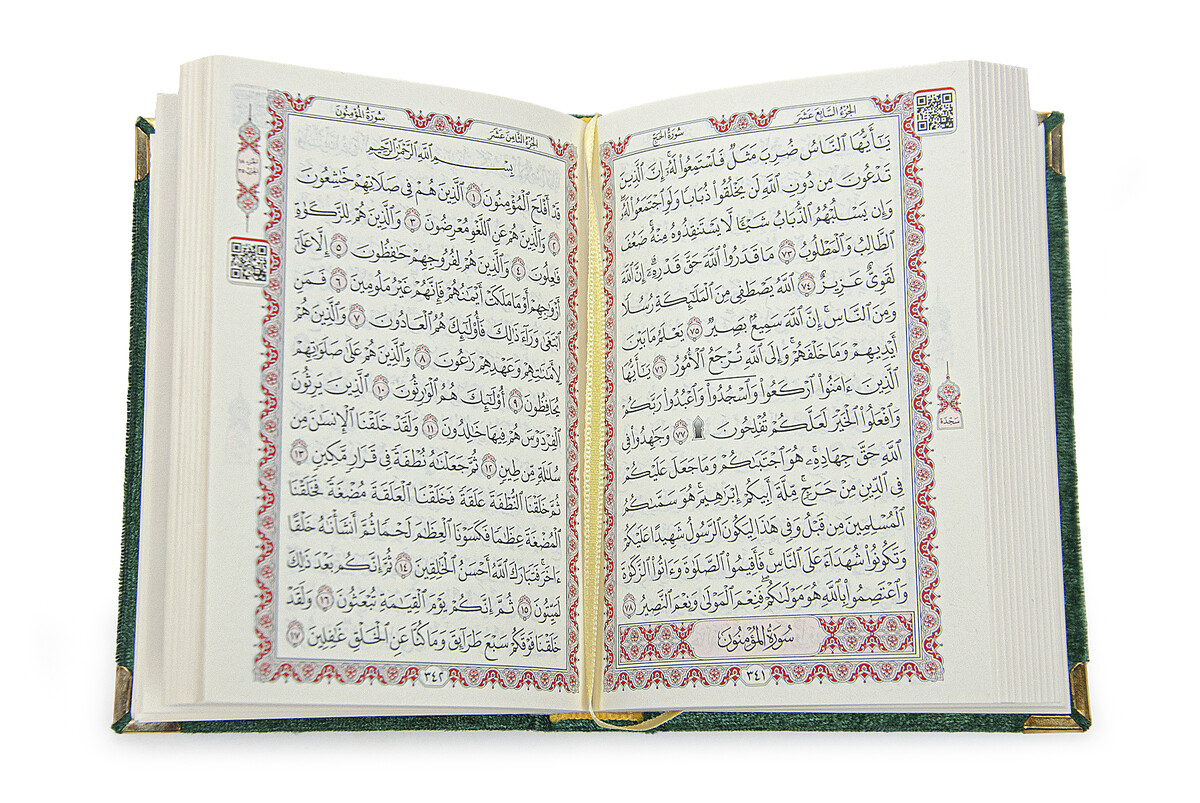 سُورَةُ الحَجِّ
الجُزْءُ السَّابِعَ عَشَرَ
يَٰٓأَيُّهَا ٱلنَّاسُ ضُرِبَ مَثَلٌ فَٱسْتَمِعُوا۟ لَهُۥٓ ۚ إِنَّ ٱلَّذِينَ
تَدْعُونَ مِن دُونِ ٱللَّهِ لَن يَخْلُقُوا۟ ذُبَابًا وَلَوِ ٱجْتَمَعُوا۟ لَهُۥ ۖ
وَإِن يَسْلُبْهُمُ ٱلذُّبَابُ شَيْـًٔا لَّا يَسْتَنقِذُوهُ مِنْهُ ۚ ضَعُفَ
ٱلطَّالِبُ وَٱلْمَطْلُوبُ ٧٣ مَا قَدَرُوا۟ ٱللَّهَ حَقَّ قَدْرِهِۦٓ ۗ إِنَّ ٱللَّهَ
لَقَوِىٌّ عَزِيزٌ ٧٤ ٱللَّهُ يَصْطَفِى مِنَ ٱلْمَلَٰٓئِكَةِ رُسُلًا
وَمِنَ ٱلنَّاسِ ۚ إِنَّ ٱللَّهَ سَمِيعٌۢ بَصِيرٌ ٧٥ يَعْلَمُ مَا بَيْنَ
أَيْدِيهِمْ وَمَا خَلْفَهُمْ ۗ وَإِلَى ٱللَّهِ تُرْجَعُ ٱلْأُمُورُ ٧٦ يَٰٓأَيُّهَا
ٱلَّذِينَ ءَامَنُوا۟ ٱرْكَعُوا۟ وَٱسْجُدُوا۟ وَٱعْبُدُوا۟ رَبَّكُمْ
وَٱفْعَلُوا۟ ٱلْخَيْرَ لَعَلَّكُمْ تُفْلِحُونَ ۩ ٧٧ وَجَٰهِدُوا۟ فِى
ٱللَّهِ حَقَّ جِهَادِهِۦ ۚ هُوَ ٱجْتَبَىٰكُمْ وَمَا جَعَلَ عَلَيْكُمْ
فِى ٱلدِّينِ مِنْ حَرَجٍ ۚ مِّلَّةَ أَبِيكُمْ إِبْرَٰهِيمَ ۚ هُوَ سَمَّىٰكُمُ
ٱلْمُسْلِمِينَ مِن قَبْلُ وَفِى هَٰذَا لِيَكُونَ ٱلرَّسُولُ شَهِيدًا عَلَيْكُمْ
وَتَكُونُوا۟ شُهَدَآءَ عَلَى ٱلنَّاسِ ۚ فَأَقِيمُوا۟ ٱلصَّلَوٰةَ وَءَاتُوا۟ ٱلزَّكَوٰةَ
وَٱعْتَصِمُوا۟ بِٱللَّهِ هُوَ مَوْلَىٰكُمْ ۖ فَنِعْمَ ٱلْمَوْلَىٰ وَنِعْمَ ٱلنَّصِيرُ ٧٨
سُورَةُ المُؤْمِنُونَ
سَجْدَة
٣٤١
الجُزْءُ الثَّامِنَ عَشَرَ
سُورَةُ المُؤْمِنُونَ
بِسْمِ ٱللَّهِ ٱلرَّحْمَٰنِ ٱلرَّحِيمِ
قَدْ أَفْلَحَ ٱلْمُؤْمِنُونَ ١ ٱلَّذِينَ هُمْ فِى صَلَاتِهِمْ خَٰشِعُونَ
٢ وَٱلَّذِينَ هُمْ عَنِ ٱللَّغْوِ مُعْرِضُونَ ٣ وَٱلَّذِينَ هُمْ لِلزَّكَوٰةِ
فَٰعِلُونَ ٤ وَٱلَّذِينَ هُمْ لِفُرُوجِهِمْ حَٰفِظُونَ ٥ إِلَّا عَلَىٰٓ
أَزْوَٰجِهِمْ أَوْ مَا مَلَكَتْ أَيْمَٰنُهُمْ فَإِنَّهُمْ غَيْرُ مَلُومِينَ ٦ فَمَنِ
ٱبْتَغَىٰ وَرَآءَ ذَٰلِكَ فَأُو۟لَٰٓئِكَ هُمُ ٱلْعَادُونَ ٧ وَٱلَّذِينَ هُمْ
لِأَمَٰنَٰتِهِمْ وَعَهْدِهِمْ رَٰعُونَ ٨ وَٱلَّذِينَ هُمْ عَلَىٰ صَلَوَٰتِهِمْ
يُحَافِظُونَ ٩ أُو۟لَٰٓئِكَ هُمُ ٱلْوَٰرِثُونَ ١٠ ٱلَّذِينَ يَرِثُونَ
ٱلْفِرْدَوْسَ هُمْ فِيهَا خَٰلِدُونَ ١١ وَلَقَدْ خَلَقْنَا ٱلْإِنسَٰنَ مِن
سُلَٰلَةٍ مِّن طِينٍ ١٢ ثُمَّ جَعَلْنَٰهُ نُطْفَةً فِى قَرَارٍ مَّكِينٍ ١٣
ثُمَّ خَلَقْنَا ٱلنُّطْفَةَ عَلَقَةً فَخَلَقْنَا ٱلْعَلَقَةَ مُضْغَةً فَخَلَقْنَا
ٱلْمُضْغَةَ عِظَٰمًا فَكَسَوْنَا ٱلْعِظَٰمَ لَحْمًا ثُمَّ أَنشَأْنَٰهُ خَلْقًا
ءَاخَرَ ۚ فَتَبَارَكَ ٱللَّهُ أَحْسَنُ ٱلْخَٰلِقِينَ ١٤ ثُمَّ إِنَّكُم بَعْدَ ذَٰلِكَ
لَمَيِّتُونَ ١٥ ثُمَّ إِنَّكُمْ يَوْمَ ٱلْقِيَٰمَةِ تُبْعَثُونَ ١٦ وَلَقَدْ
خَلَقْنَا فَوْقَكُمْ سَبْعَ طَرَآئِقَ وَمَا كُنَّا عَنِ ٱلْخَلْقِ غَٰفِلِينَ ١٧
٣٤٢